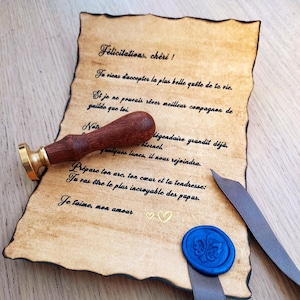 Félicitations, chéri !
Tu viens d'accepter la plus belle quête de ta vie.
Et je ne pouvais rêver meilleur compagnon de
guilde que toi.
Not
légendaire grandit déjà,
quelques lunes, il nous rejoindra.
Prépare ton arc, ton cœur et ta tendresse:
Tu vas être le plus incroyable des papas.
Je t'aime, mon amour